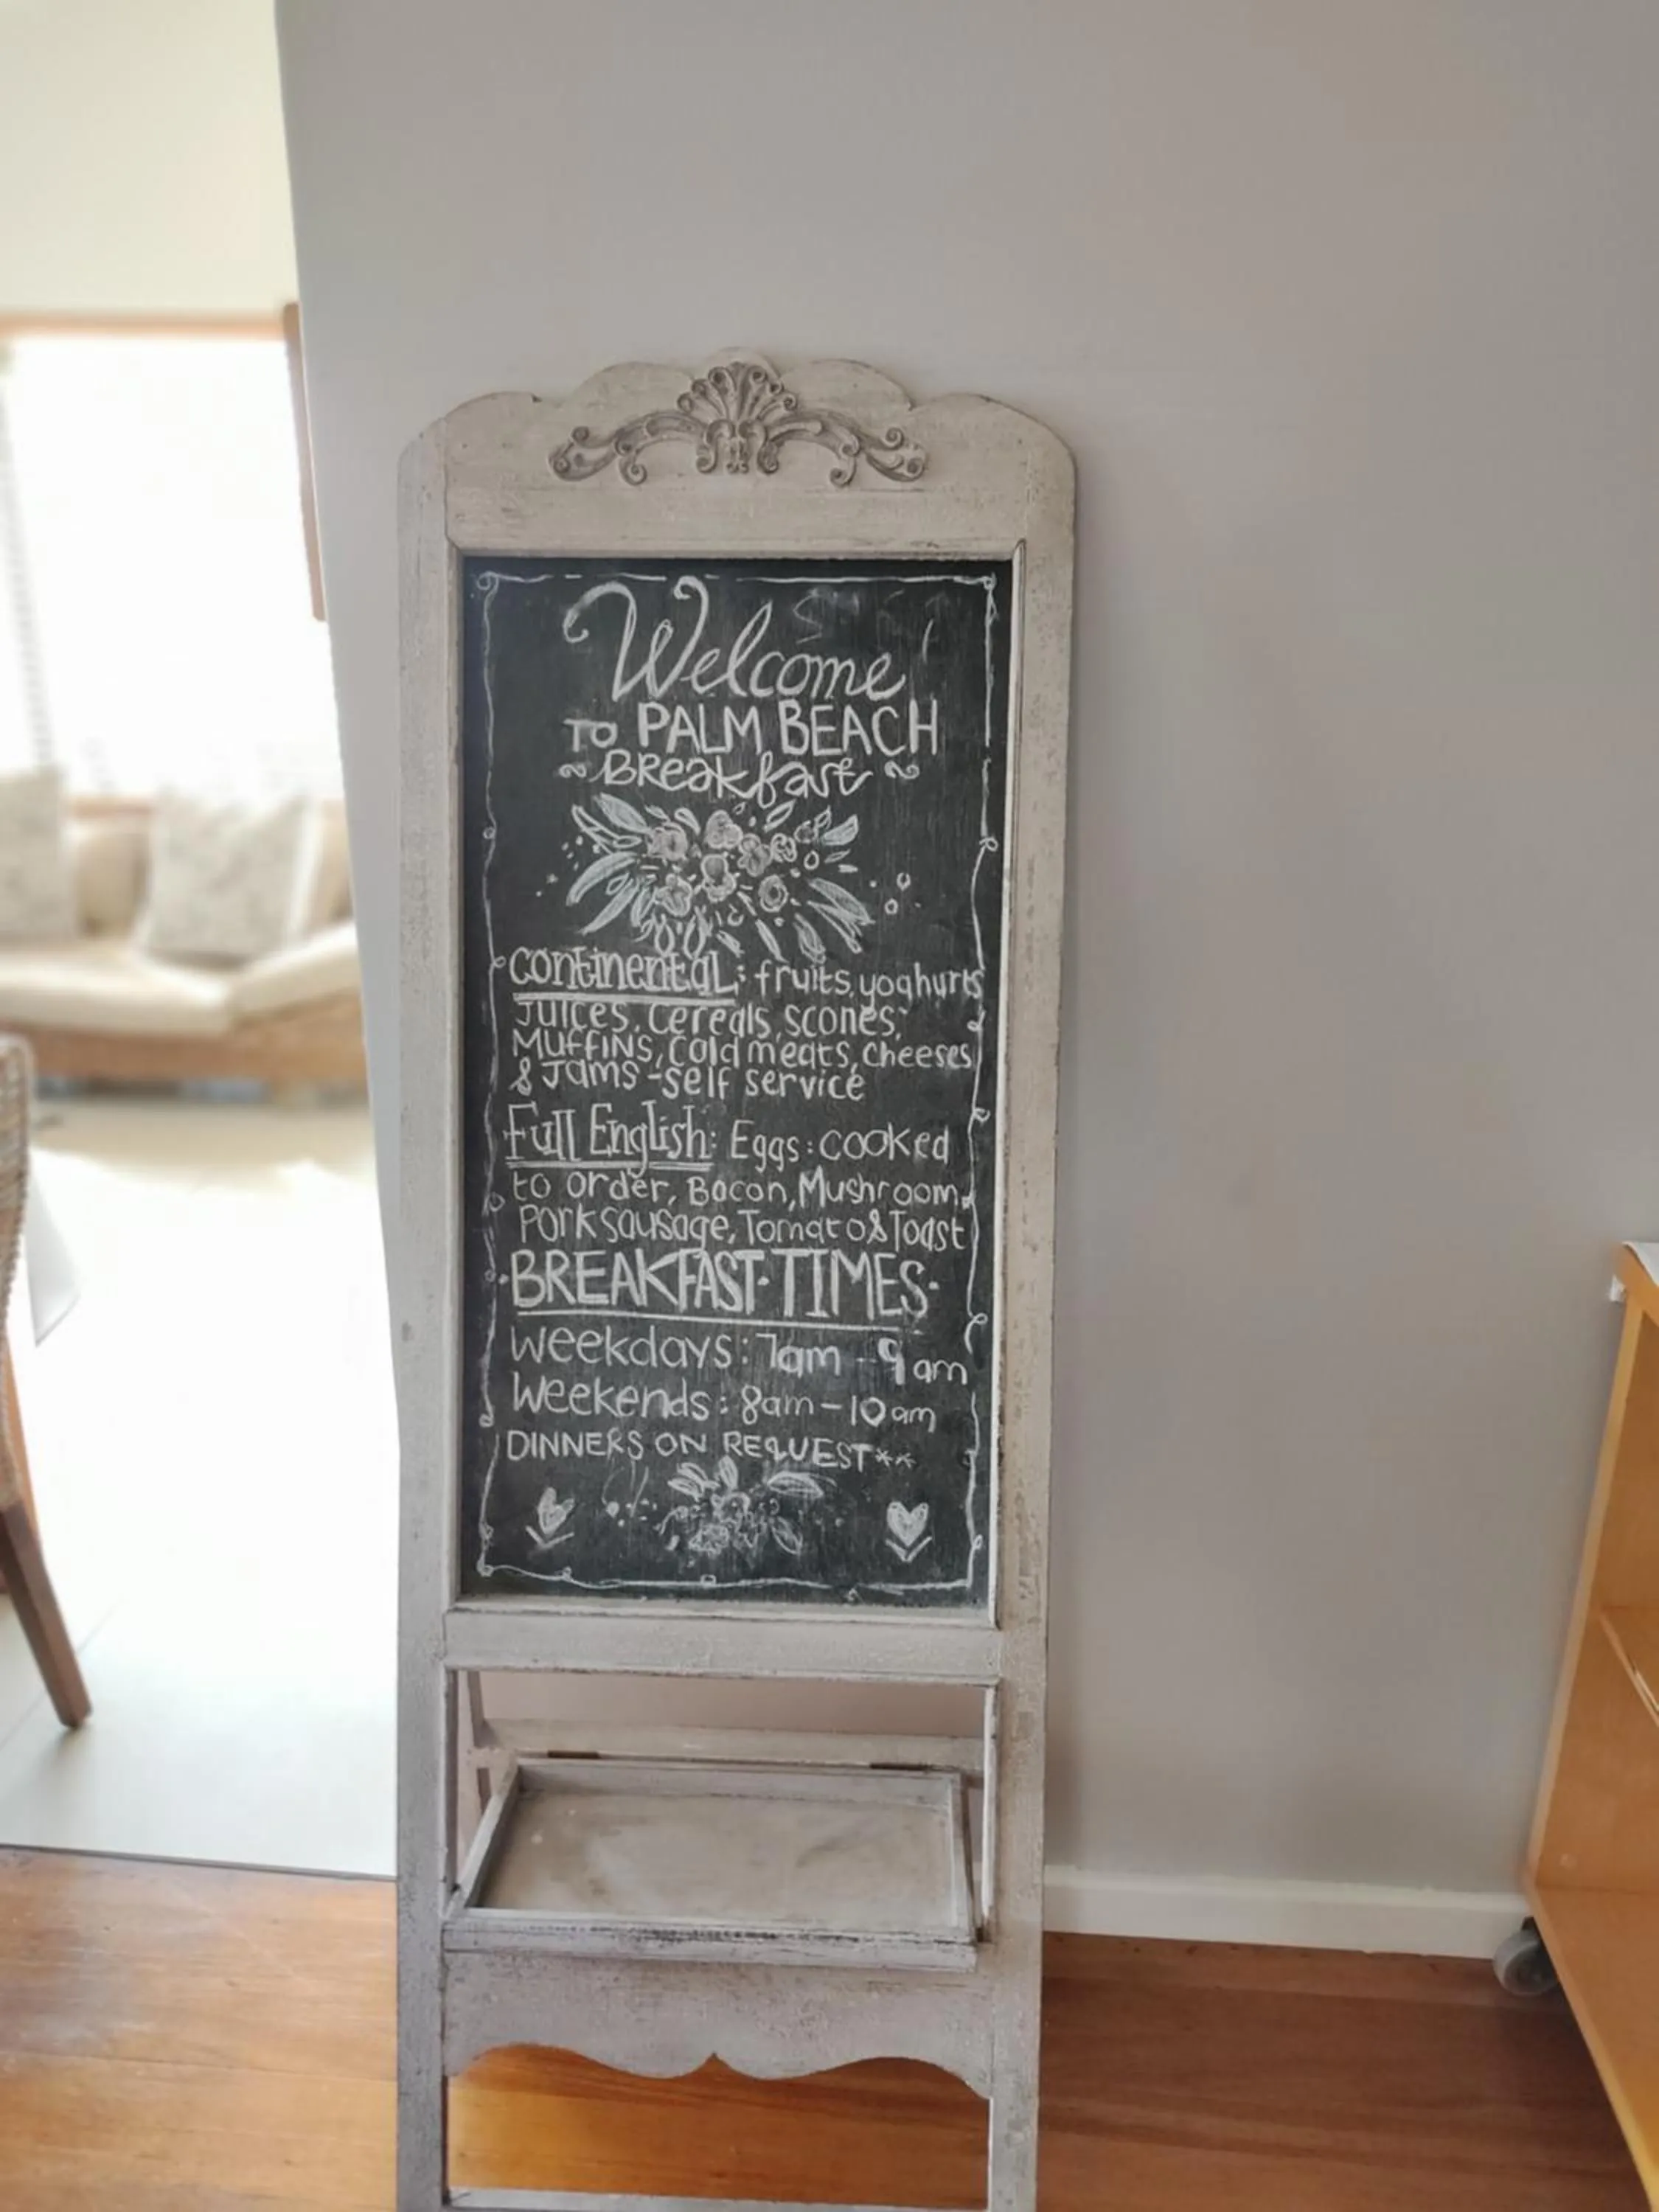 Welcome
TO PALM BEACH
Breakfast
Continental: fruits, yoghurts
Juices, cereals, scones,
Muffins, cold meats, cheeses
& Jams - self service
Full English: Eggs: cooked
to order, Bacon, Mushroom,
Pork sausage, Tomato & Toast
·BREAKFAST·TIMES·
Weekdays: 7am - 9am
Weekends: 8am - 10am
DINNERS ON REQUEST**